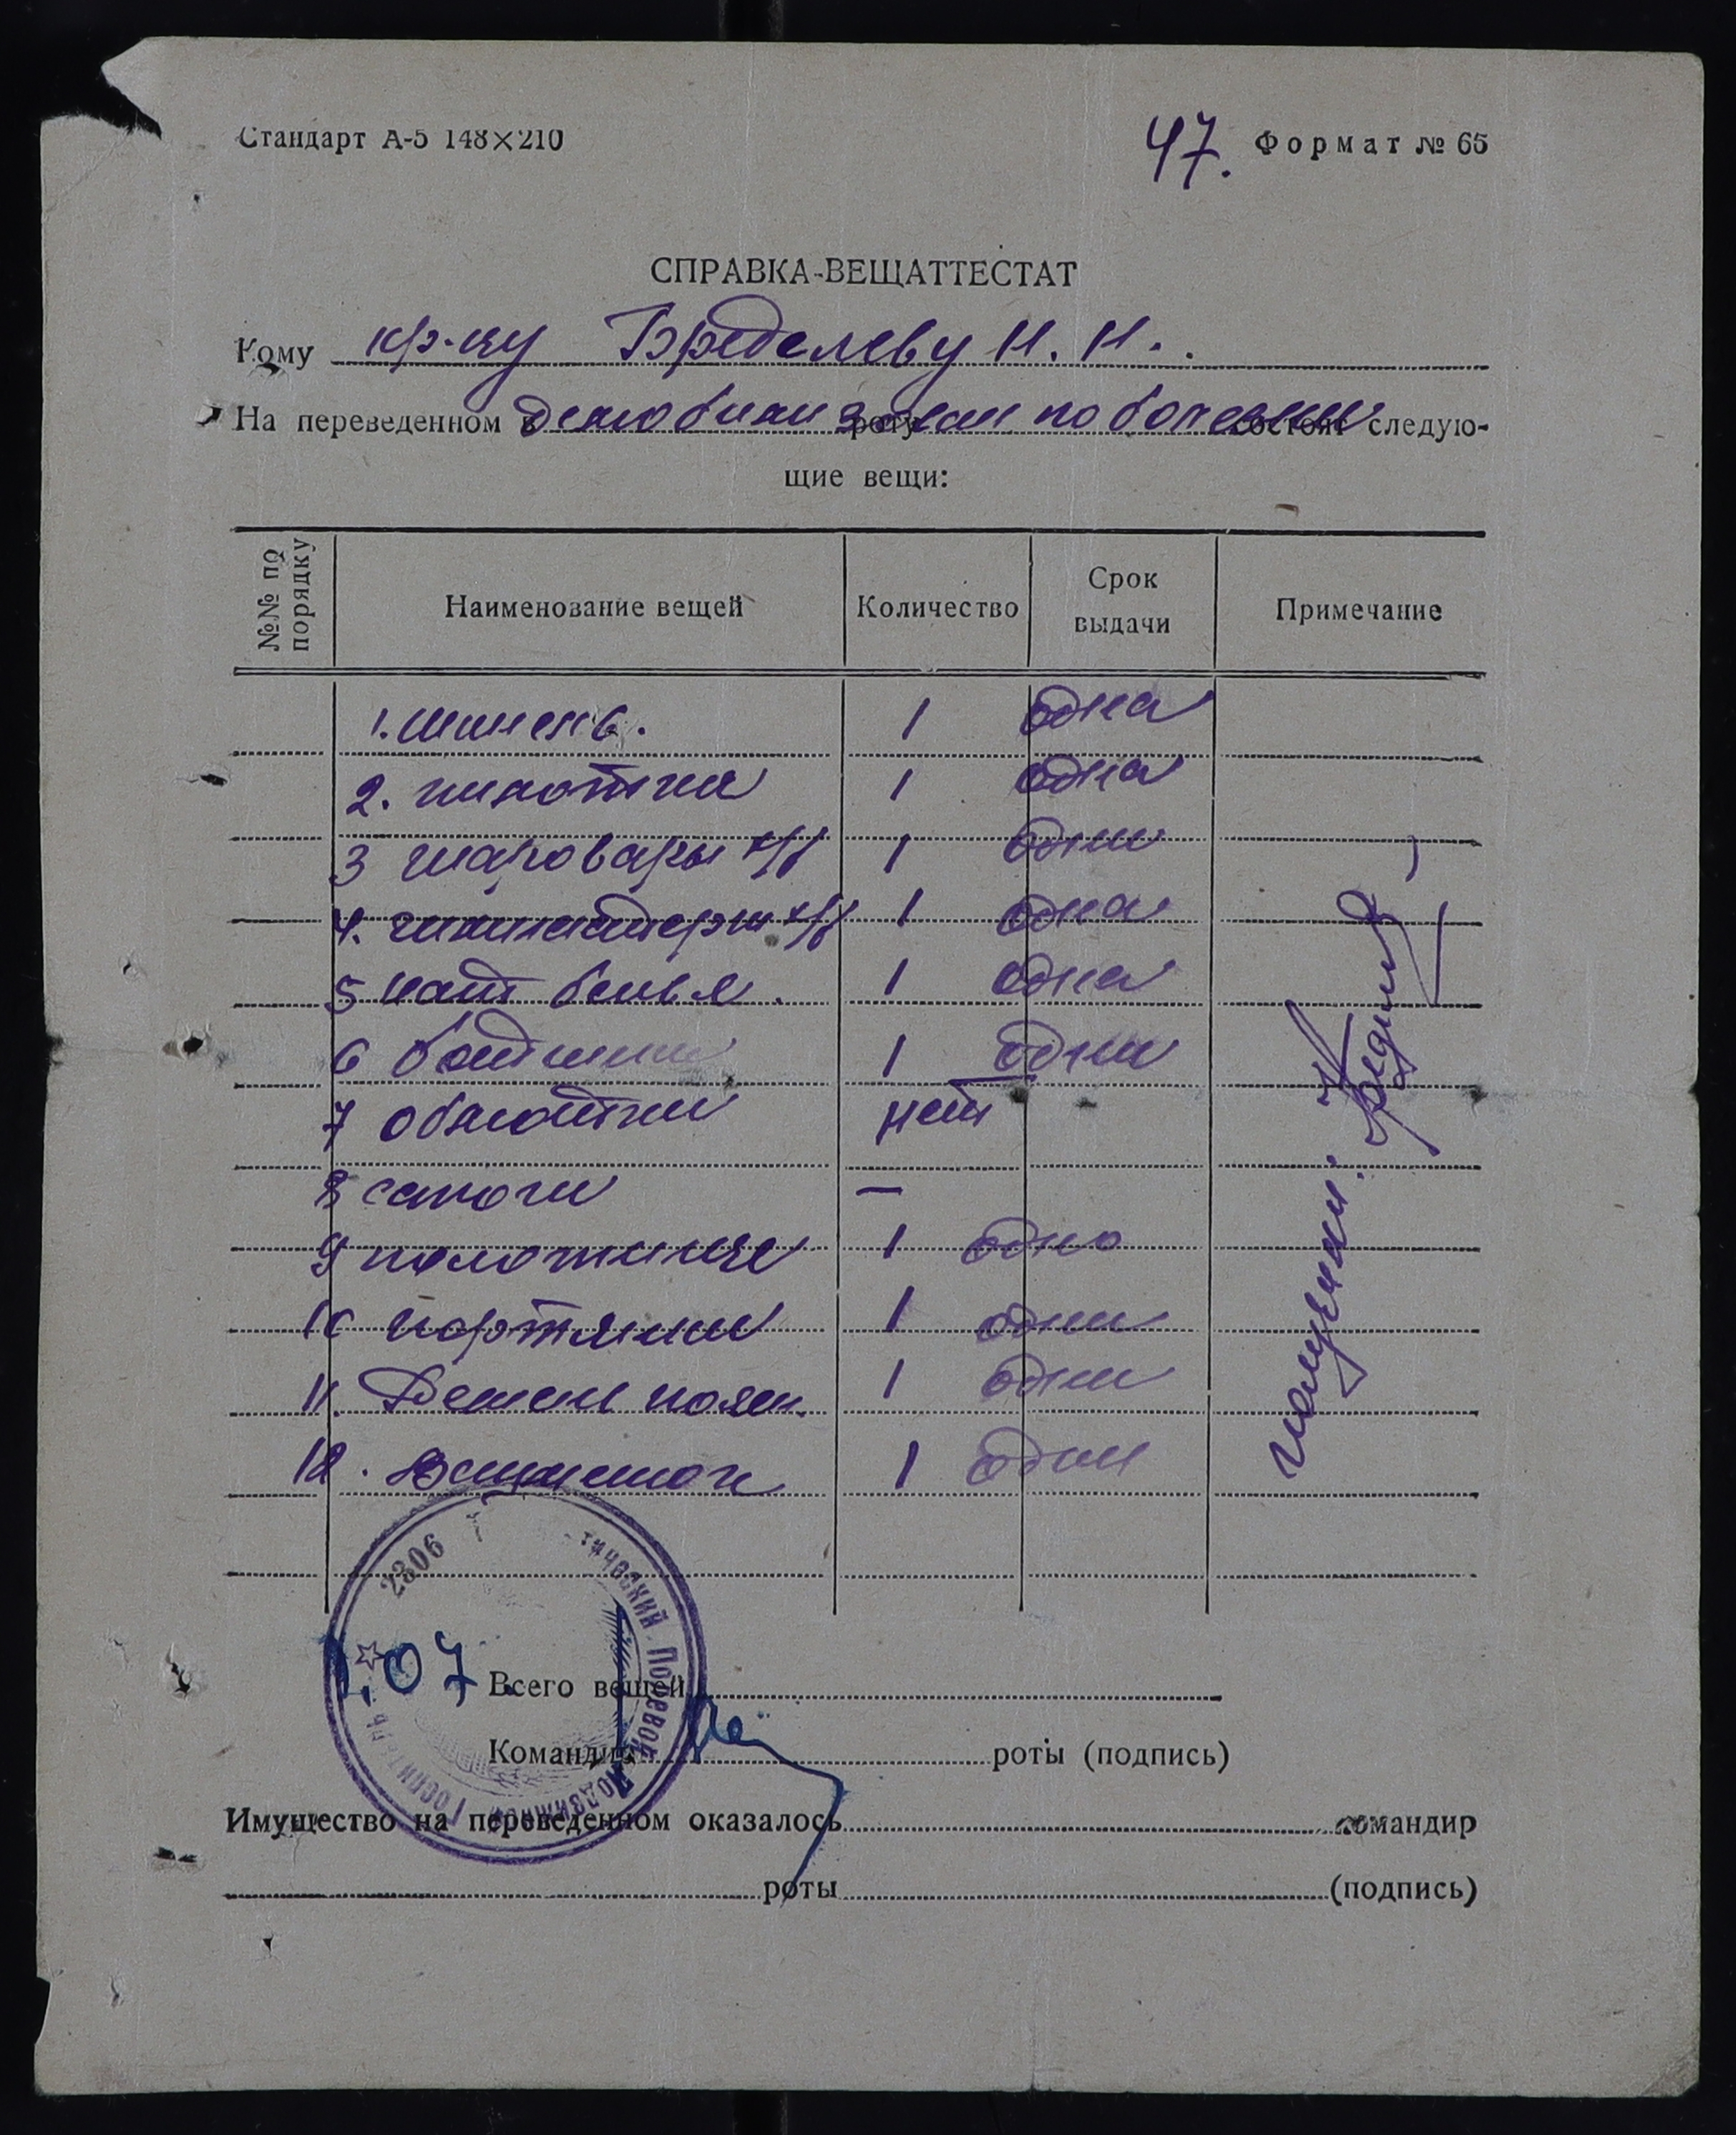 Стандарт А-5 148×210
47. Формат № 65
СПРАВКА-ВЕЩАТТЕСТАТ
Кому кр-цу Бределеву Н. Н.
На переведенном в роту состоят следую-
демобилизован по болезни
щие вещи:
№№ по порядку
Наименование вещей
Количество
Срок выдачи
Примечание
1. шинель. 1 одна
2. пилотка 1 одна
3 шаровары х/б 1 одни
4. гимнастерка х/б 1 одна
5 нат белья. 1 одна
6 ботинки 1 одни
7 обмотки нет
8 сапоги —
9 полотенце 1 одно
10 портянки 1 одни
11. Ремень поясн. 1 один
12. Вещмешок 1 один
получил:
2306
тический Полевой Подвижной Госпиталь
1.07 Всего вещей
Командир роты (подпись)
Имущество на переведенном оказалось командир
роты (подпись)